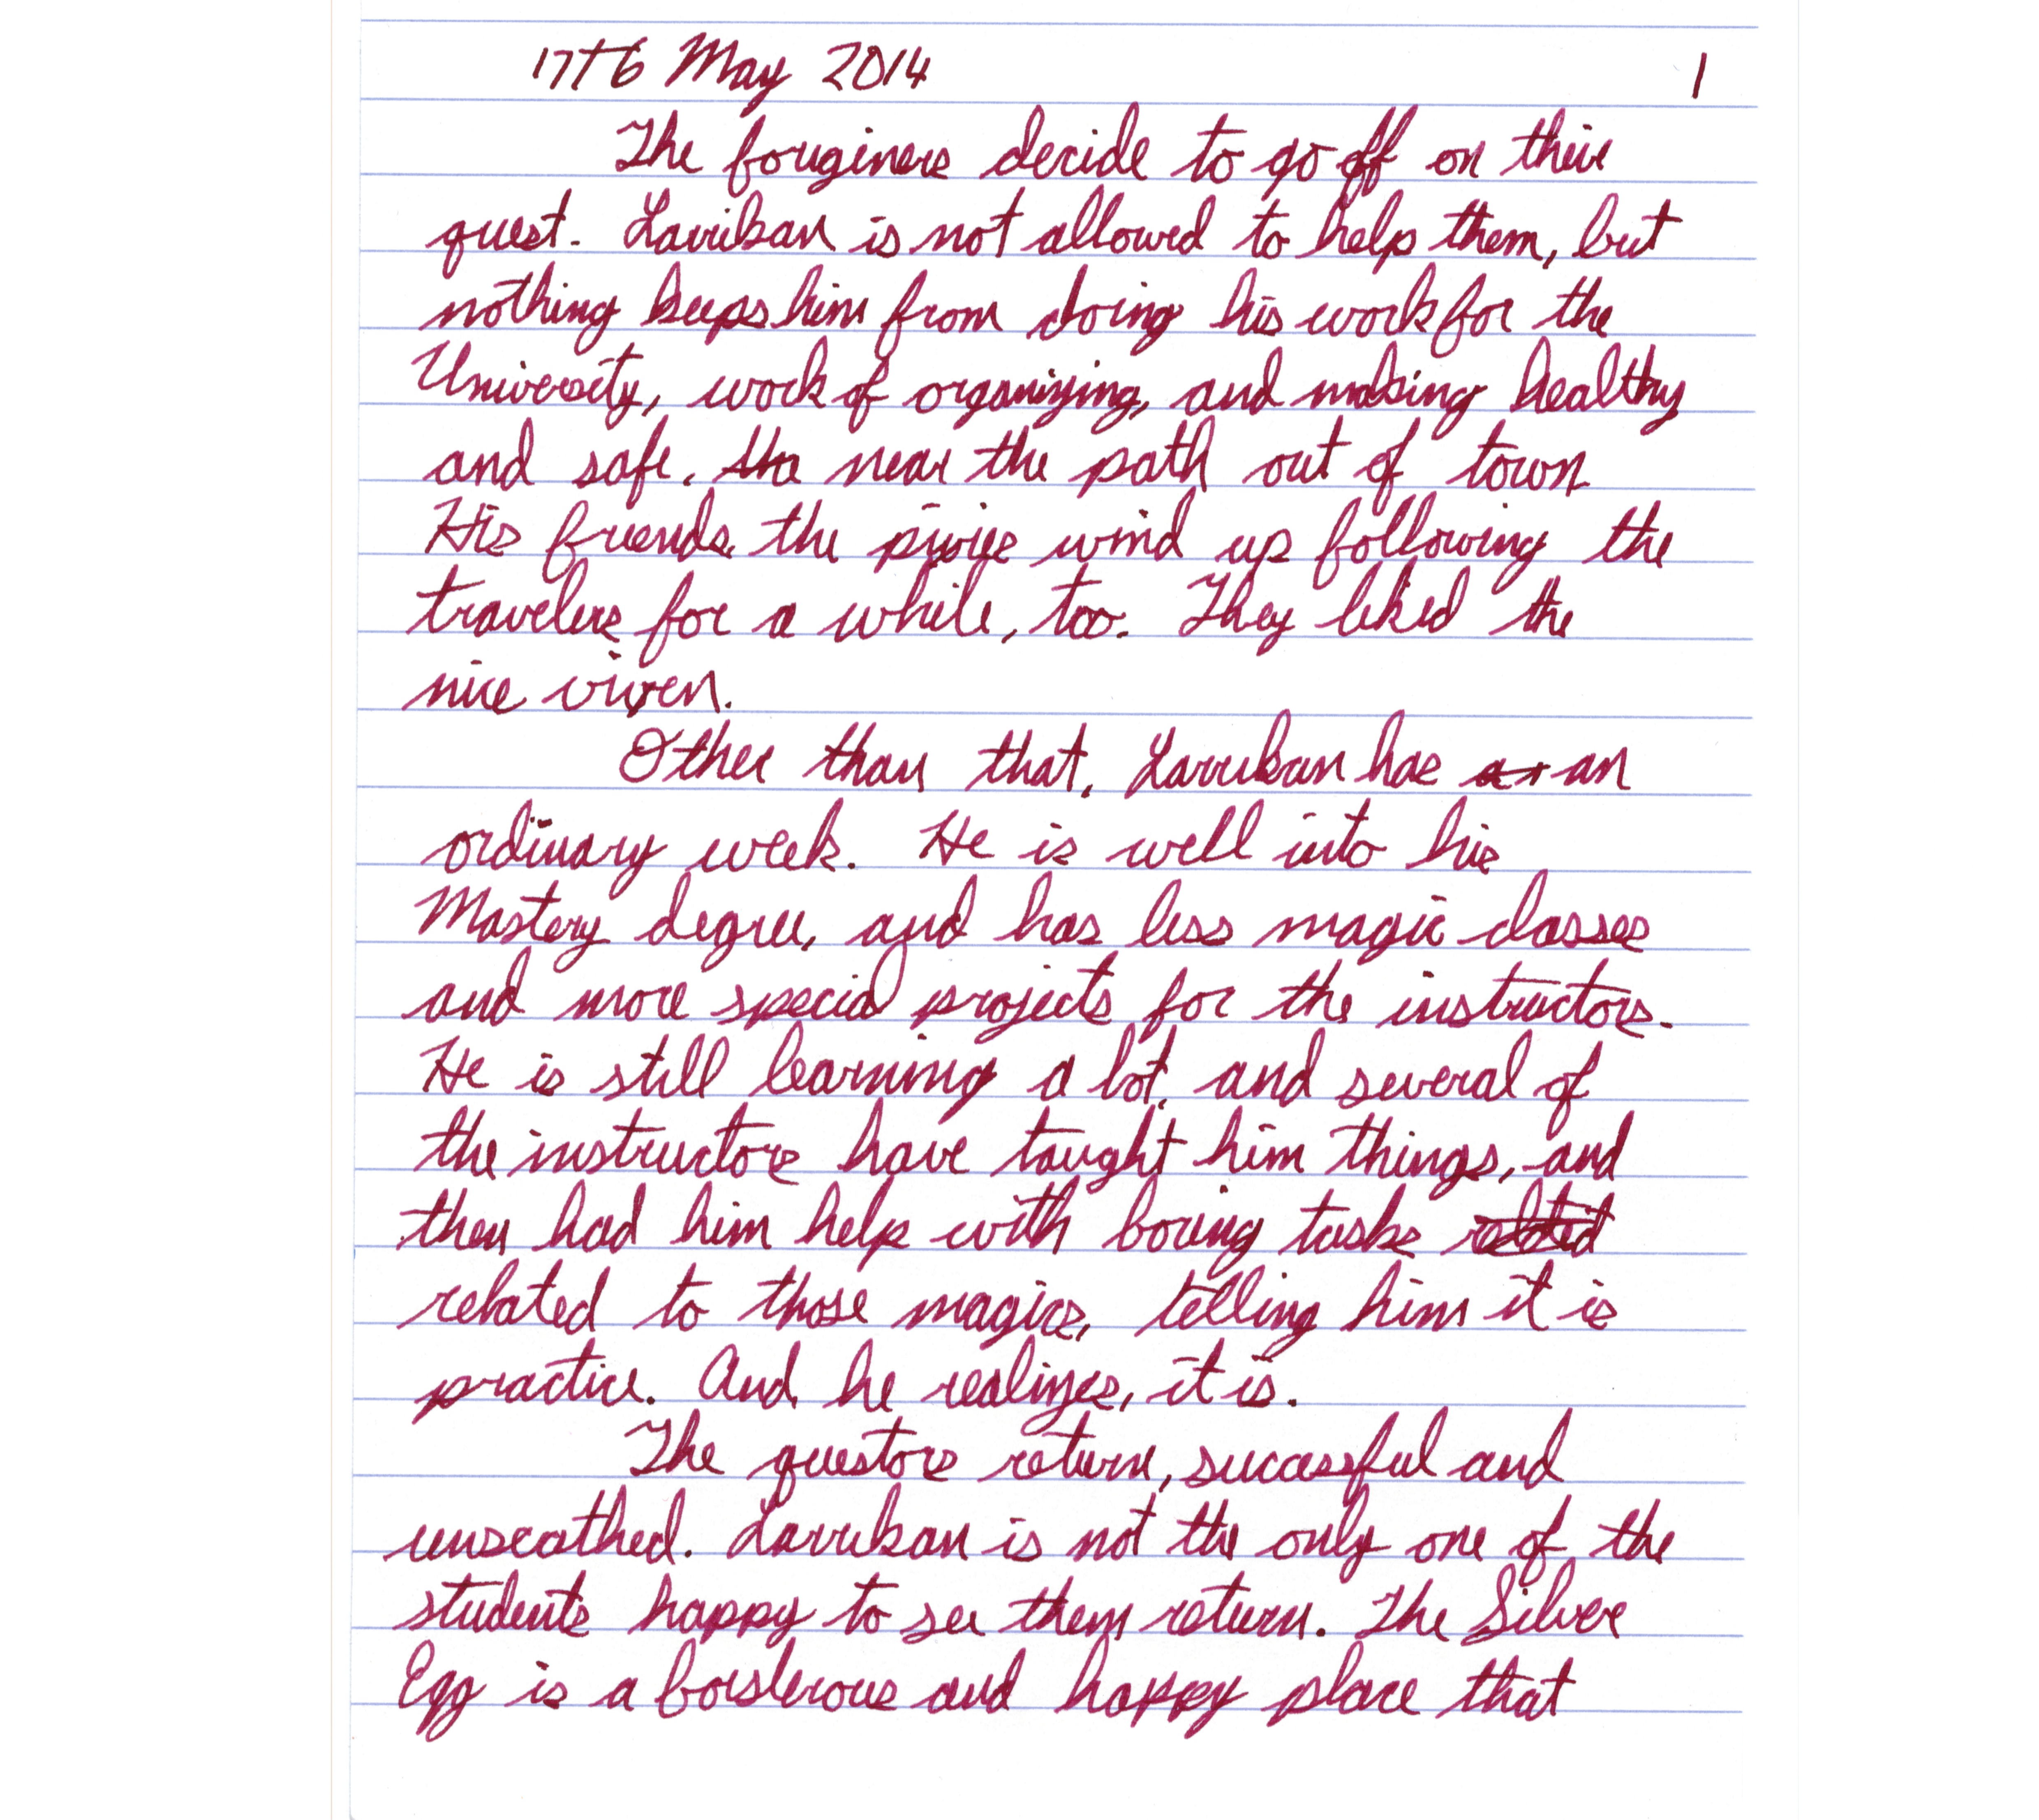 17th May 2014 1
The fouginers decide to go off on their
quest. Larriban is not allowed to help them, but
nothing keeps him from doing his work for the
University, work of organizing, and making healthy
and safe, the near the path out of town
His friends the pixies wind up following the
travelers for a while, too. They liked the
nice vixen.
Other than that, Larriban has an an
ordinary week. He is well into his
Mastery degree, and has less magic classes
and more special projects for the instructors.
He is still learning a lot, and several of
the instructors have taught him things, and
then had him help with boring tasks related
related to those magics, telling him it is
practice. And, he realizes, it is.
The questors return, successful and
unscathed. Larriban is not the only one of the
students happy to see them return. The Silver
Egg is a boisterous and happy place that